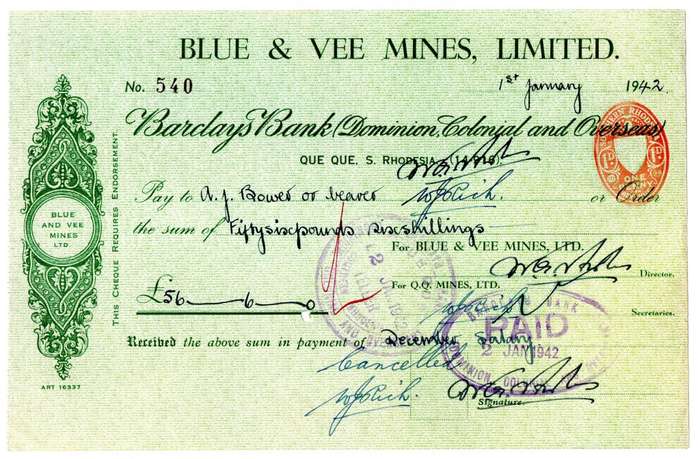 BLUE & VEE MINES, LIMITED.
No. 540
1st January 1942.
Barclays Bank (Dominion, Colonial and Overseas)
QUE QUE, S. RHODESIA
Pay to A. J. Bower or bearer or Order
the sum of Fiftysixpounds Sixshillings
For BLUE & VEE MINES, LTD.
Director.
For Q.Q. MINES, LTD.
£56-6-0
Secretaries.
Received the above sum in payment of December Salary
Cancelled
Signature.
THIS CHEQUE REQUIRES ENDORSEMENT.
BLUE
AND VEE
MINES
LTD.
ART 16337
ONE
BARCLAYS BANK
PAID
2 JAN 1942
DOMINION